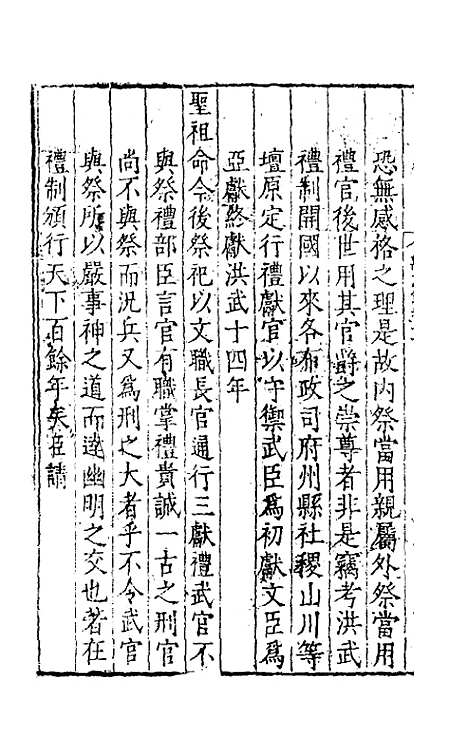 恐無感格之理是故內祭當用親屬外祭當用
禮官後世用其官爵之崇尊者非是竊考洪武
禮制開國以來各布政司府州縣社稷山川等
壇原定行禮獻官以守禦武臣為初獻文臣為
亞獻終獻洪武十四年
聖祖命今後祭祀以文職長官通行三獻禮武官不
與祭禮部臣言官有職掌禮貴誠一古之刑官
尚不與祭而況兵又為刑之大者乎不令武官
與祭所以嚴事神之道而達幽明之交也若在
禮制頒行天下百餘年矣臣請